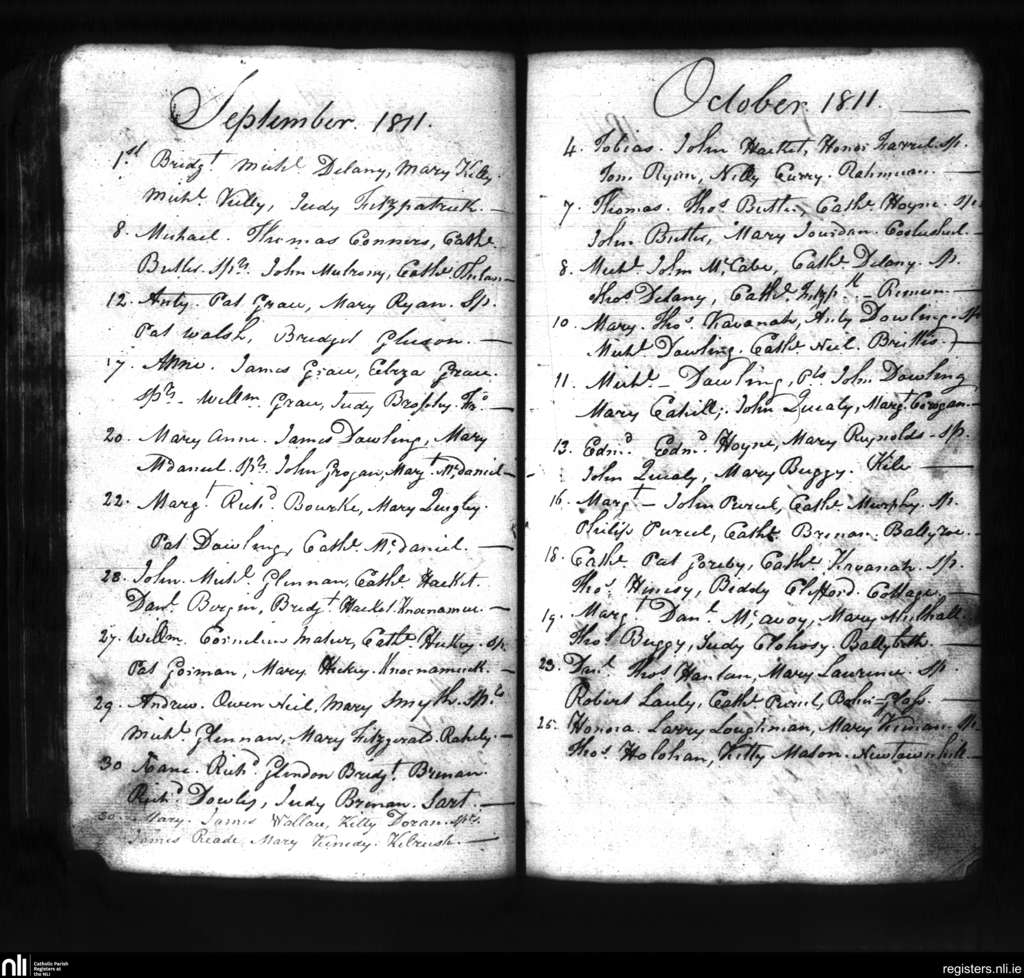 September. 1811.
1st Bridgt. Michl. Delany, Mary Kelly.
Michl. Kelly, Judy Fitzpatrick.
8. Michael. Thomas Conners, Cathe.
Butler. Sprs. John Mulrony, Cathe. Phelan
12. Anty. Pat Grace, Mary Ryan. Sp.
Pat Walsh, Bridget Gleeson.
17. Anne. James Grace, Eliza Grace.
Sprs. Willm. Grace, Judy Brophy.
20. Mary Anne. James Dowling, Mary
McDaniel. Sprs. John Grogan, Margt. McDaniel
22. Margt. Richd. Bourke, Mary Quigly.
Pat Dowling, Cathe. McDaniel.
28. John. Michl. Glennan, Cathe. Hacket.
Danl. Bergin, Bridgt. Hacket. Knocnamuc.
27. Willm. Cornelius Maher, Cathe. Hickey. Sp.
Pat Gorman, Mary Hickey. Knocnamuck.
29. Andrew. Owen Neil, Mary Smyth. Sprs.
Michl. Glennan, Mary Fitzgerald. Rahely.
30 Richd. Glendon Bridgt. Brenan.
Richd. Dowly, Judy Brenan. Sart.
30. Mary. James Wallace, Kitty Doran. Sprs.
James Reade, Mary Kenedy. Kilrush.
October. 1811.
4. Tobias. John Hacket, Honor Farrel. Sp.
Tom Ryan, Nelly Curry.
7. Thomas. Thos. Butler, Cathe. Hoyne. Sp.
John Butler, Mary Jourdan. Coolashel.
8. Michl. John McCabe, Cathe. Delany. Sp.
Thos. Delany, Cathe. Fitzpk.
10. Mary. Thos. Kavanah, Anty Dowling. Sp.
Michl. Dowling. Cathe. Neil. Brittis.
11. Michl. Dowling, Pts John Dowling
Mary Cahill; John Quealy, Margt. Grogan.
13. Edmd. Edmd. Hoyne, Mary Reynolds. Sp.
John Quealy, Mary Buggy. Kile
16. Margt. John Purcel, Cathe. Murphy. Sp.
Philip Purcel, Cathe. Brenan. Ballyroe.
18. Cathe. Pat Goreby, Cathe. Kavanah. Sp.
Thos. Hinesy, Biddy Clifford. Cottage.
19. Margt. Danl. McAvoy, Mary Mulhall.
Thos. Buggy, Judy Clohosy. Ballybeth.
23. Danl. Thos. Hanlan, Mary Laurence. Sp.
Robert Lauly, Cathe. Purcel,
25. Honora. Larry Loughman, Mary Kirwan. Sp.
Thos. Holohan, Kitty Mason. Newtownhill
nli
Catholic Parish
Registers at
the NLI
registers.nli.ie